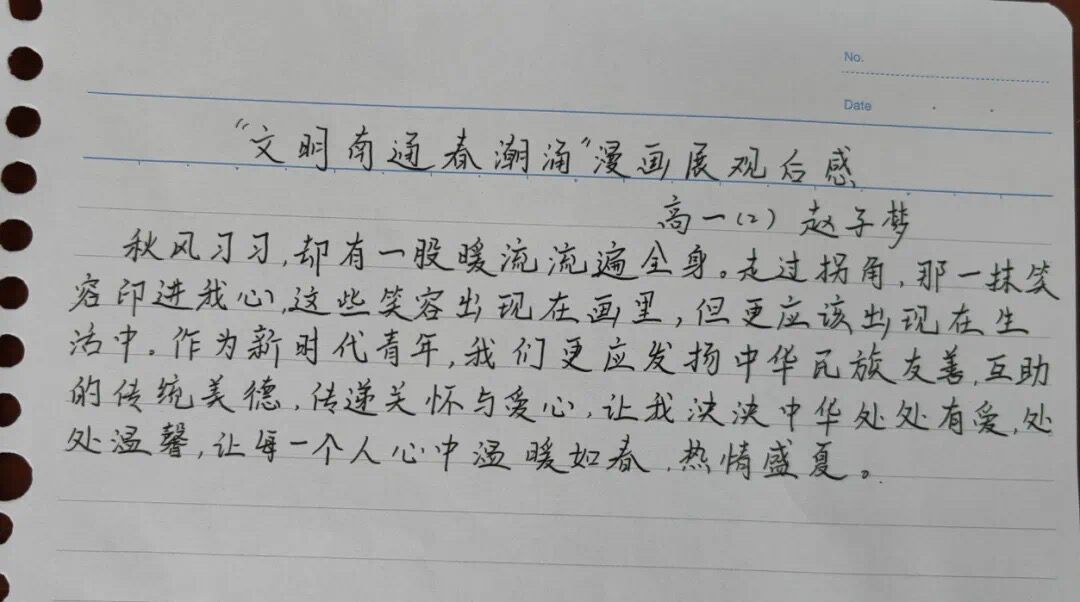 No.
Date
“文明南通春潮涌”漫画展观后感
高一(2) 赵子梦
秋风习习,却有一股暖流流遍全身。走过拐角,那一抹笑
容印进我心,这些笑容出现在画里,但更应该出现在生
活中。作为新时代青年,我们更应发扬中华民族友善,互助
的传统美德,传递关怀与爱心,让我泱泱中华处处有爱,处
处温馨,让每一个人心中温暖如春,热情盛夏。